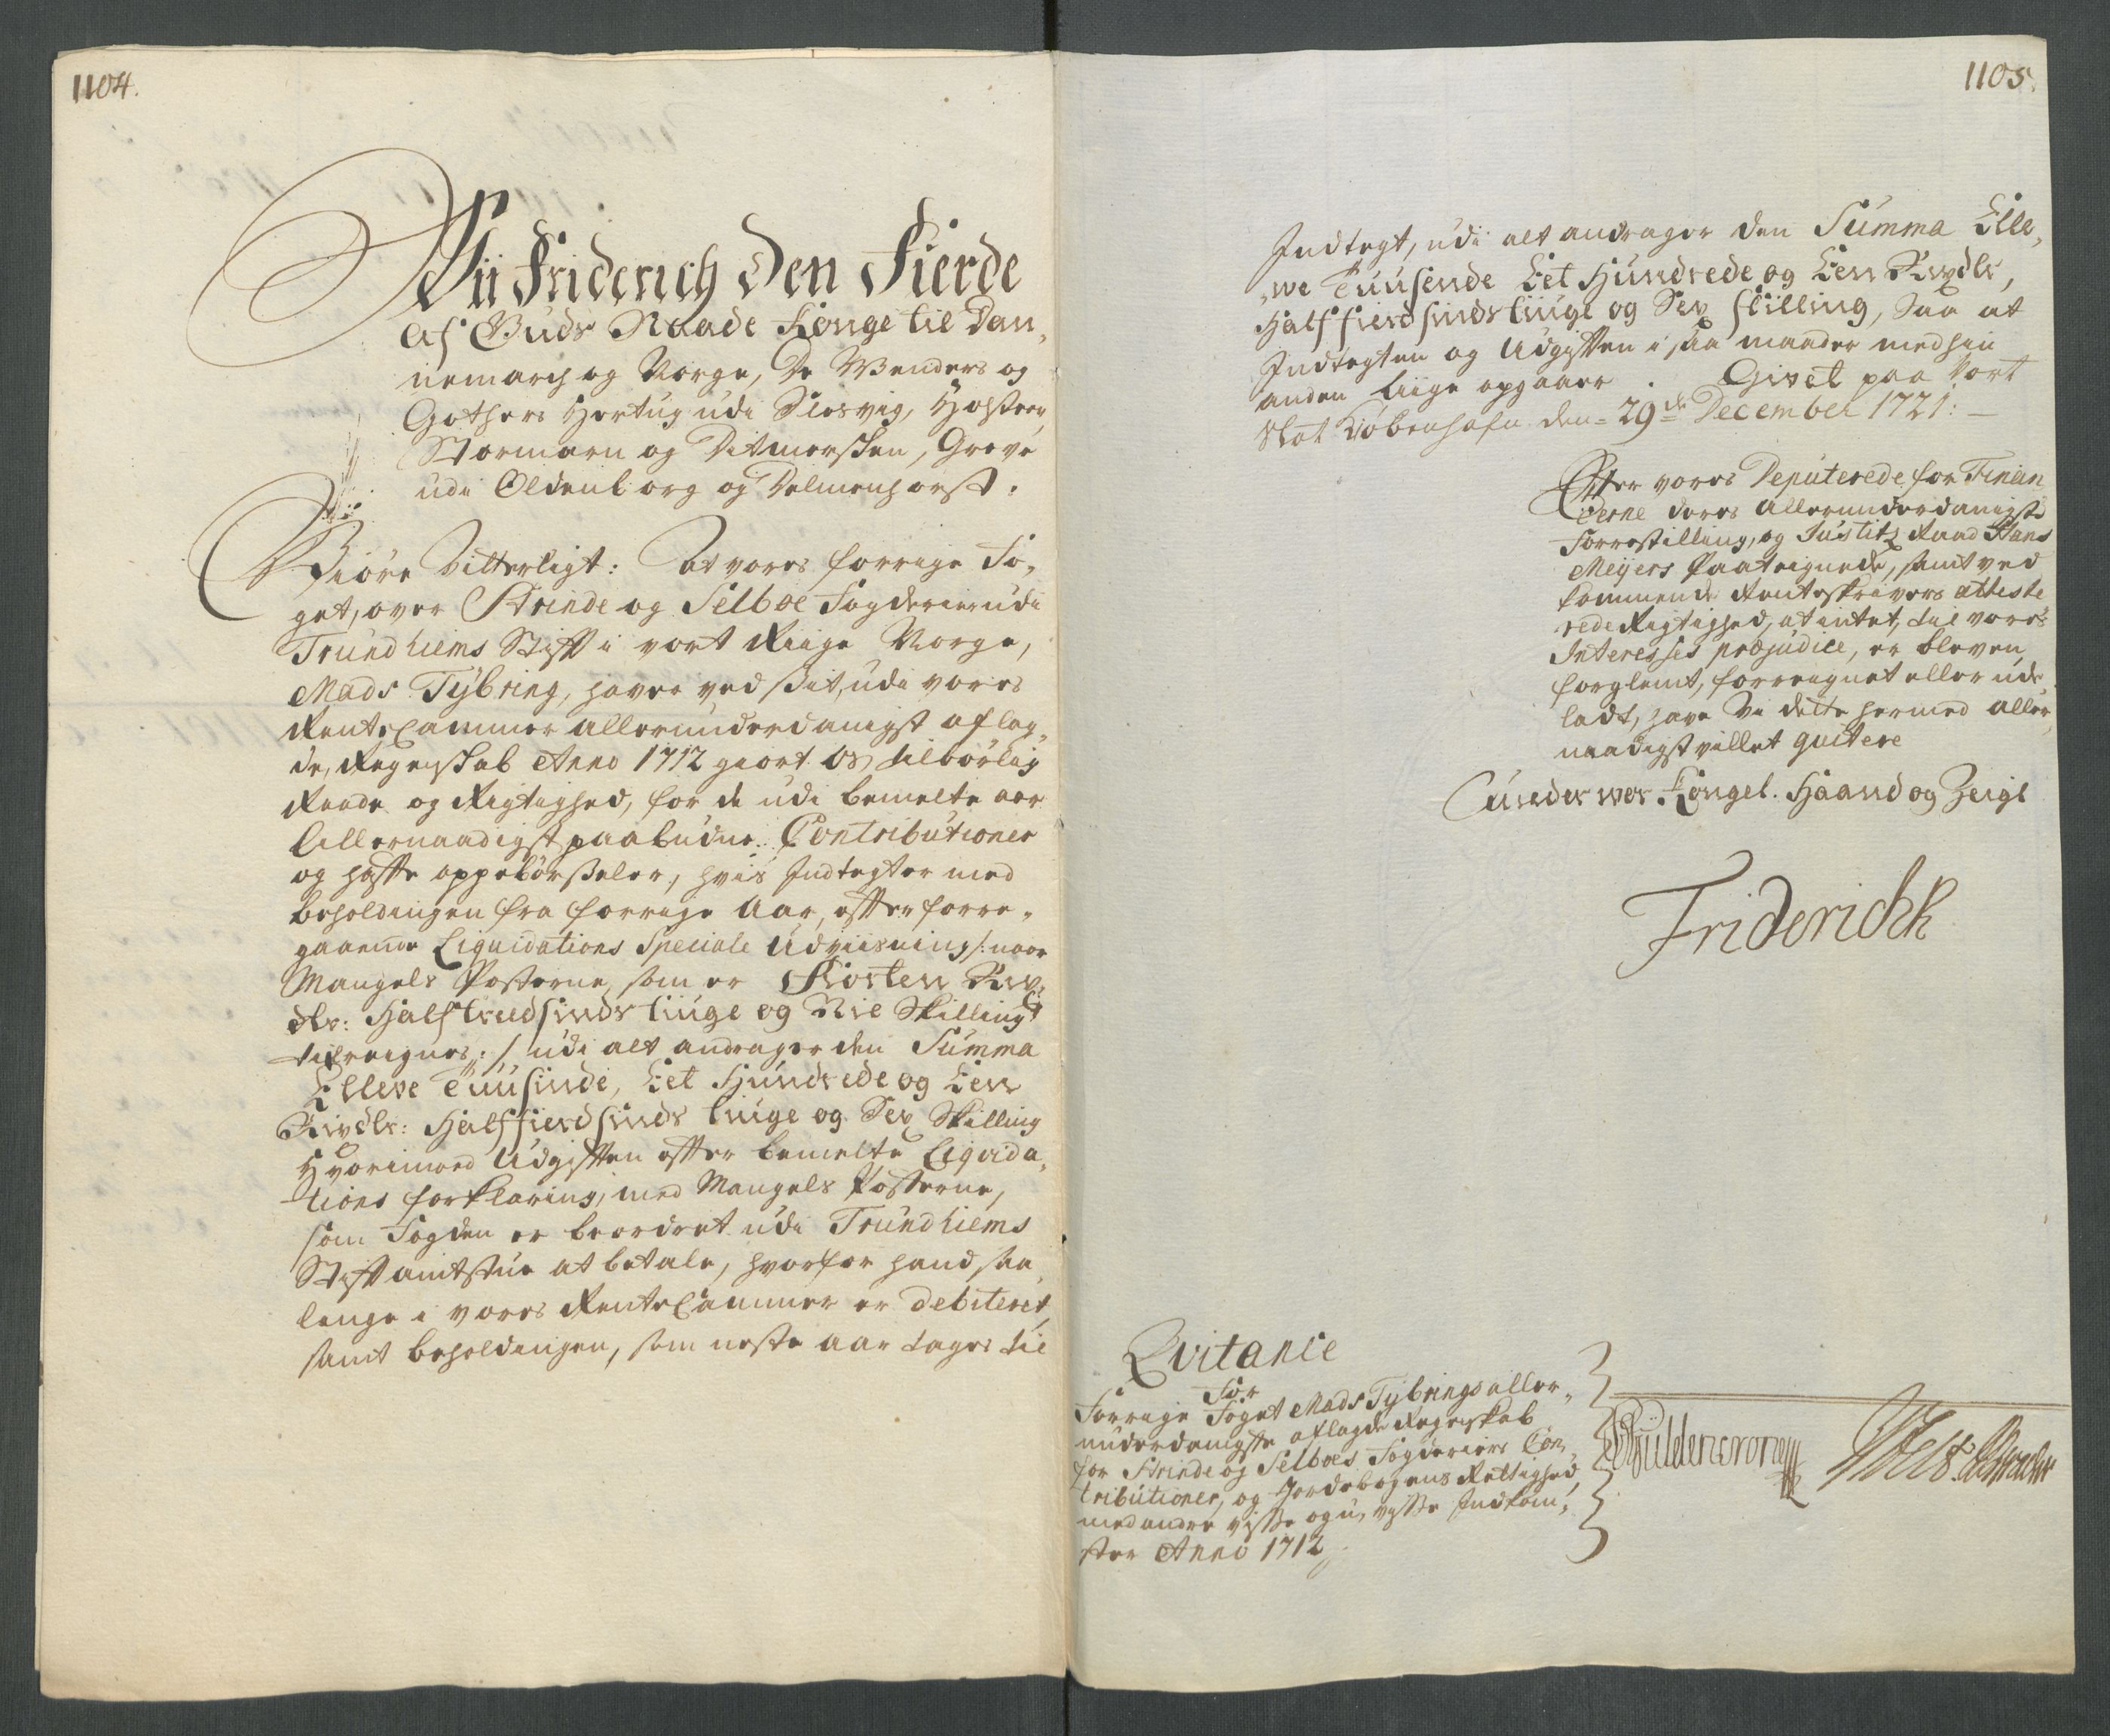 1104.
Vii Friderich Den Fierde
Af Guds Naade Konge til Dan„
nemarch og Norge, De Wenders og
Gothers Hertug udi Slesvig, Holsten,
Stormarn og Ditmersken, Greve
udi Oldenborg og Delmenhorst.
Giöre Vitterligt: At vores forrige Fo„
get, over Strinde og Selboe Fogderier udi
Trundhiems Stift i vort Riige Norge,
Mads Tÿbring, haver ved sit, udi vores
RenteCammer allerunderdanigst aflag„
de, Regenskab Anno 1712 giort Os tilbörlig
Reede og Rigtighed, for de udi bemelte aar
Allernaadigst paabudne Contributioner
og haffte oppebörseler, hvis Indtegter med
beholdingen fra forrige Aar, efter forre„
gaaende Liquidations Speciale Udviisning /: naar
Mangels Posterne, som er Tiorten Rix„
dlr: Halftredsindstiuge og Nie Skilling
tilreignes :/ udi alt andrager den Summa
Elleve Tuusinde, Eet Hundrede og Een
Rixdlr: Halffierdsinds tiuge og Sex Skilling
Hvorimod Udgiften efter bemelte Liqvida„
tions forklaring, med Mangels Posterne,
som Fogden er beordret udi Trundhiems
Stiftamtstue at betale, hvorfor hand saa
lenge i vores RenteCammer er debiteret,
samt beholdingen, som neste aar tages til
1105.
Indtegt, udi alt andrager den Summa Elle„
„we Tuusende Eet Hundrede og Een Rixdlr,
Halffierdsindstiuge og Sex skilling, Saa at
Indtegten og Udgiften i saa maader med hin
anden liige opgaaer. Givet paa Vort
Slot Kiöbenhafn den 29de December 1721: —
Efter vores Deputerede for Finan
cerne deres allerunderdanigste
Forrestilling, og Justitz Raad Hans
Meÿers Paateignede, samt ved
kommende Renteskrivers atteste
rede Rigtighed, at intet, til vores
Interesses præjudice, er bleven
forglemt, forreignet eller ude„
ladt, have Vi dette hermed aller„
naadigst villet quitere
Under vor Kongel. Haand og Zeigl
Friderichk
Qvitance
For
Forrige Foget Mads Tÿbrings aller„
underdanigste aflagde Regenskab
for Strinde og Selboes Fogderiers Con„
tributioner, og Jordebogens Rettighed
med andre visse og u„visse Indkom„
ster Anno 1712
Güldencrone